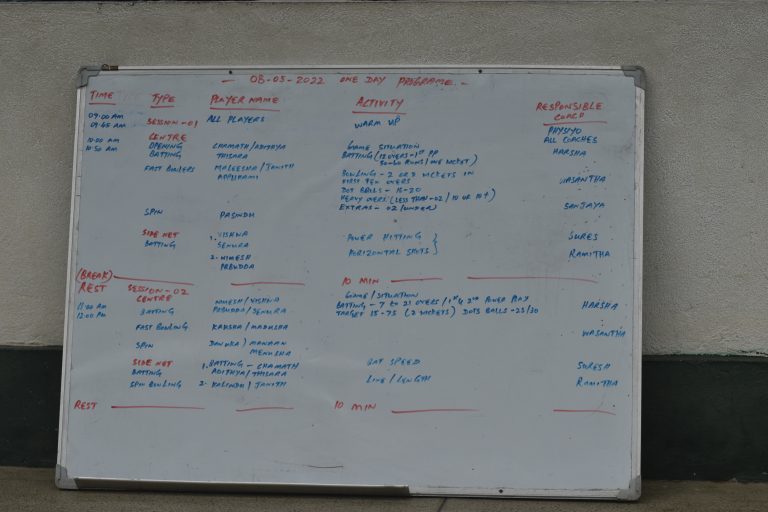 - 08-05-2022 ONE DAY PROGRAME -
TIME TYPE PLAYER NAME ACTIVITY RESPONSIBLE COACH
09:00 AM SESSION-01 ALL PLAYERS WARM UP PHYSIYO
09:45 AM ALL COACHES
10:00 AM CENTRE
10:50 AM OPENING CHAMATH/ADITHYA GAME SITUATION HARSHA
BATTING THISARA BATTING (12 OVERS - 1ST PP
50-60 RUNS/ONE WICKET)
FAST BOWLERS MALEESHA/JANITH BOWLING - 2 OR 3 WICKETS IN WASANTHA
FIRST TEN OVERS
DOT BALLS - 15-20
HEAVY OVERS (LESS THAN-02/10 OR 10+)
SPIN PASINDU EXTRAS - 02/UNDER) SANJAYA
SIDE NET 1. VISHWA POWER HITTING } SURES
BATTING SENURA
2. NIMESH HORIZONTAL SHOTS } RAMITHA
PABUDDA
(BREAK)
REST 10 MIN
SESSION-02
CENTRE GAME/SITUATION
11:00 AM NIMESH/VISHWA BATTING - 7 to 21 OVERS/1st & 2nd POWER PLAY HARSHA
12:00 PM BATTING PABUDDA/SENURA TARGET 15-75 (2 WICKETS) DOTS BALLS - 25/30
FAST BOWLING WASANTHA
SPIN MANAAN
SIDE NET 1. BATTING - CHAMATH BAT SPEED SURESH
BATTING ADITHYA/THISARA
SPIN BOWLING 2. KALINDU/JANITH LINE/LENGTH RAMITHA
REST 10 MIN